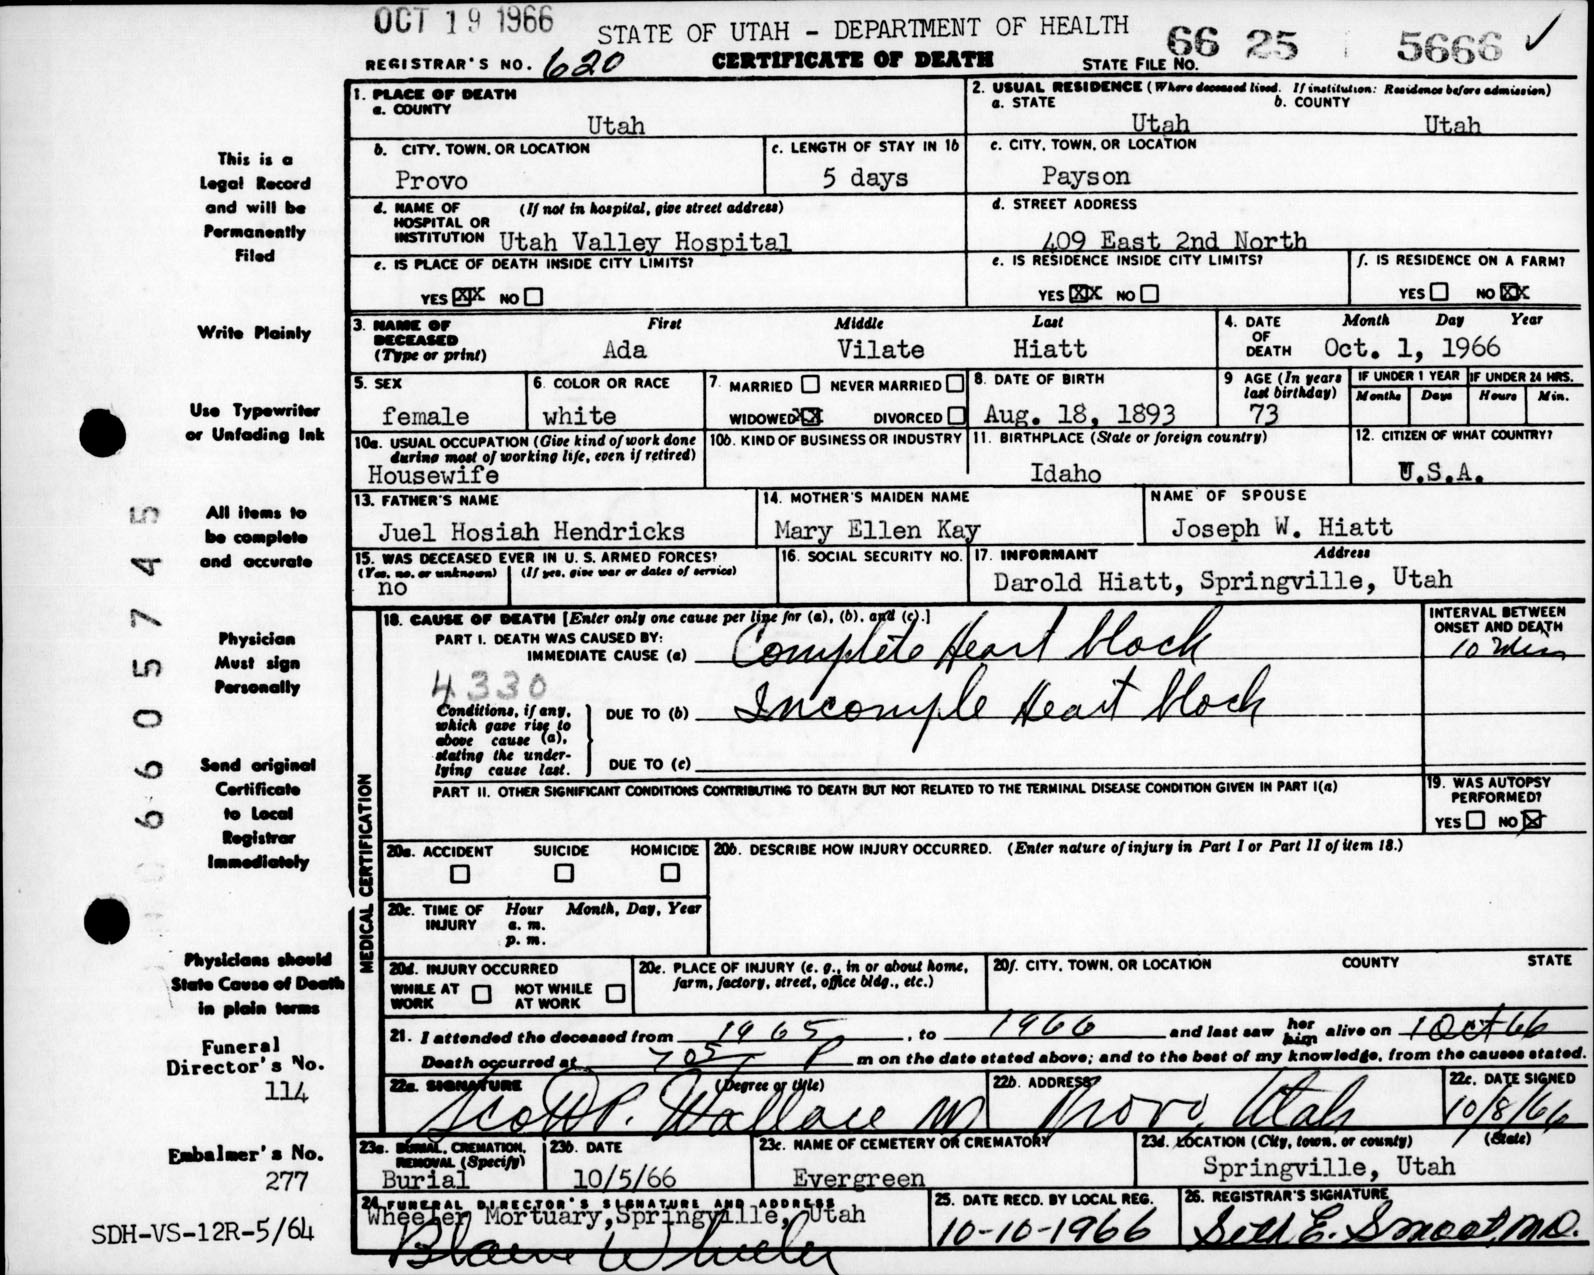 OCT 19 1966
STATE OF UTAH - DEPARTMENT OF HEALTH
66 25 5666 ✓
REGISTRAR'S NO. 620
CERTIFICATE OF DEATH
STATE FILE NO.
1. PLACE OF DEATH
a. COUNTY
Utah
2. USUAL RESIDENCE (Where deceased lived. If institution: Residence before admission)
a. STATE b. COUNTY
Utah Utah
b. CITY, TOWN, OR LOCATION
Provo
c. LENGTH OF STAY IN 1b
5 days
c. CITY, TOWN, OR LOCATION
Payson
d. NAME OF HOSPITAL OR INSTITUTION (If not in hospital, give street address)
Utah Valley Hospital
d. STREET ADDRESS
409 East 2nd North
e. IS PLACE OF DEATH INSIDE CITY LIMITS?
YES XX NO
e. IS RESIDENCE INSIDE CITY LIMITS?
YES XX NO
f. IS RESIDENCE ON A FARM?
YES NO XX
3. NAME OF DECEASED (Type or print)
First Middle Last
Ada Vilate Hiatt
4. DATE OF DEATH
Month Day Year
Oct. 1, 1966
5. SEX
female
6. COLOR OR RACE
white
7. MARRIED NEVER MARRIED
WIDOWED XX DIVORCED
8. DATE OF BIRTH
Aug. 18, 1893
9 AGE (In years last birthday)
73
IF UNDER 1 YEAR
Months Days
IF UNDER 24 HRS.
Hours Min.
10a. USUAL OCCUPATION (Give kind of work done during most of working life, even if retired)
Housewife
10b. KIND OF BUSINESS OR INDUSTRY
11. BIRTHPLACE (State or foreign country)
Idaho
12. CITIZEN OF WHAT COUNTRY?
U.S.A.
13. FATHER'S NAME
Juel Hosiah Hendricks
14. MOTHER'S MAIDEN NAME
Mary Ellen Kay
NAME OF SPOUSE
Joseph W. Hiatt
15. WAS DECEASED EVER IN U. S. ARMED FORCES?
(Yes, no, or unknown) (If yes, give war or dates of service)
no
16. SOCIAL SECURITY NO.
17. INFORMANT Address
Darold Hiatt, Springville, Utah
MEDICAL CERTIFICATION
18. CAUSE OF DEATH [Enter only one cause per line for (a), (b), and (c).]
PART I. DEATH WAS CAUSED BY:
IMMEDIATE CAUSE (a) Complete Heart block
INTERVAL BETWEEN ONSET AND DEATH
10 min
4330
Conditions, if any, which gave rise to above cause (a), stating the underlying cause last.
DUE TO (b) Incomple Heart block
DUE TO (c)
PART II. OTHER SIGNIFICANT CONDITIONS CONTRIBUTING TO DEATH BUT NOT RELATED TO THE TERMINAL DISEASE CONDITION GIVEN IN PART I(a)
19. WAS AUTOPSY PERFORMED?
YES NO X
20a. ACCIDENT SUICIDE HOMICIDE
20b. DESCRIBE HOW INJURY OCCURRED. (Enter nature of injury in Part I or Part II of item 18.)
20c. TIME OF INJURY Hour Month, Day, Year
a. m.
p. m.
20d. INJURY OCCURRED
WHILE AT WORK NOT WHILE AT WORK
20e. PLACE OF INJURY (e. g., in or about home, farm, factory, street, office bldg., etc.)
20f. CITY, TOWN, OR LOCATION COUNTY STATE
21. I attended the deceased from 1965, to 1966 and last saw her him alive on 1 Oct 66
Death occurred at 705 P m on the date stated above; and to the best of my knowledge, from the causes stated.
22a. SIGNATURE (Degree or title)
Scott P. Wallace MD
22b. ADDRESS
Provo, Utah
22c. DATE SIGNED
10/8/66
23a. BURIAL, CREMATION, REMOVAL (Specify)
Burial
23b. DATE
10/5/66
23c. NAME OF CEMETERY OR CREMATORY
Evergreen
23d. LOCATION (City, town, or county) (State)
Springville, Utah
24. FUNERAL DIRECTOR'S SIGNATURE AND ADDRESS
Wheeler Mortuary, Springville, Utah
Blaine Wheeler
25. DATE RECD. BY LOCAL REG.
10-10-1966
26. REGISTRAR'S SIGNATURE
Seth E. Smoot, M.D.
This is a
Legal Record
and will be
Permanently
Filed
Write Plainly
Use Typewriter
or Unfading Ink
All items to
be complete
and accurate
Physician
Must sign
Personally
Send original
Certificate
to Local
Registrar
Immediately
Physicians should
State Cause of Death
in plain terms
Funeral
Director's No.
114
Embalmer's No.
277
SDH-VS-12R-5/64
66057 45